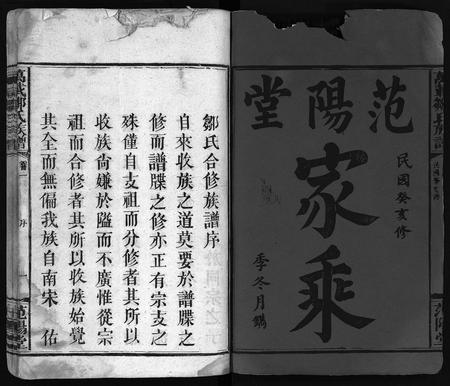 范陽堂
家乘
民國癸亥修
季冬月鐫
鄒氏合修族譜序
自來收族之道莫要於譜牒之
修而譜牒之修亦正有宗支之
殊僅自支祖而分修者其所以
收族尚嫌於隘而不廣惟從宗
祖而合修者其所以收族始覺
其全而無偏我族自南宋　佑
萬載鄒氏族譜
序
一
范陽堂